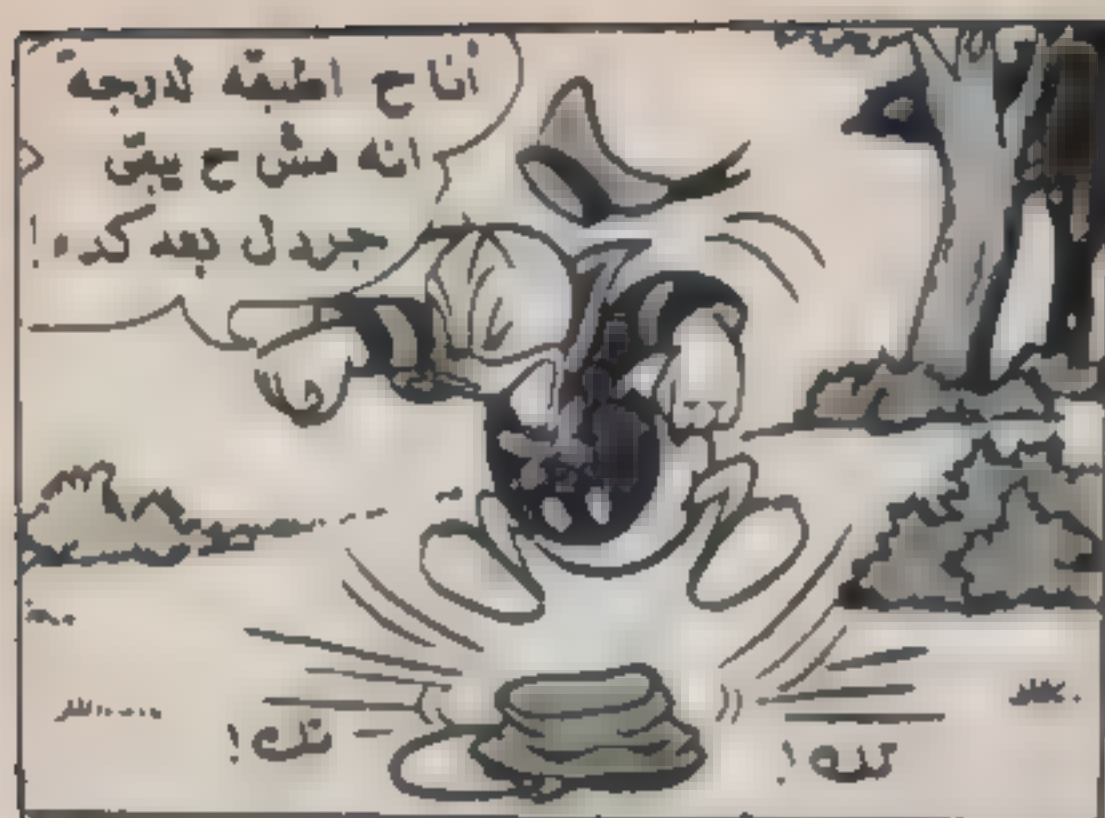 أنا ح اطبقه لدرجة
انه مش ح يبقى
جردل بعد كده!
تك!
تك!